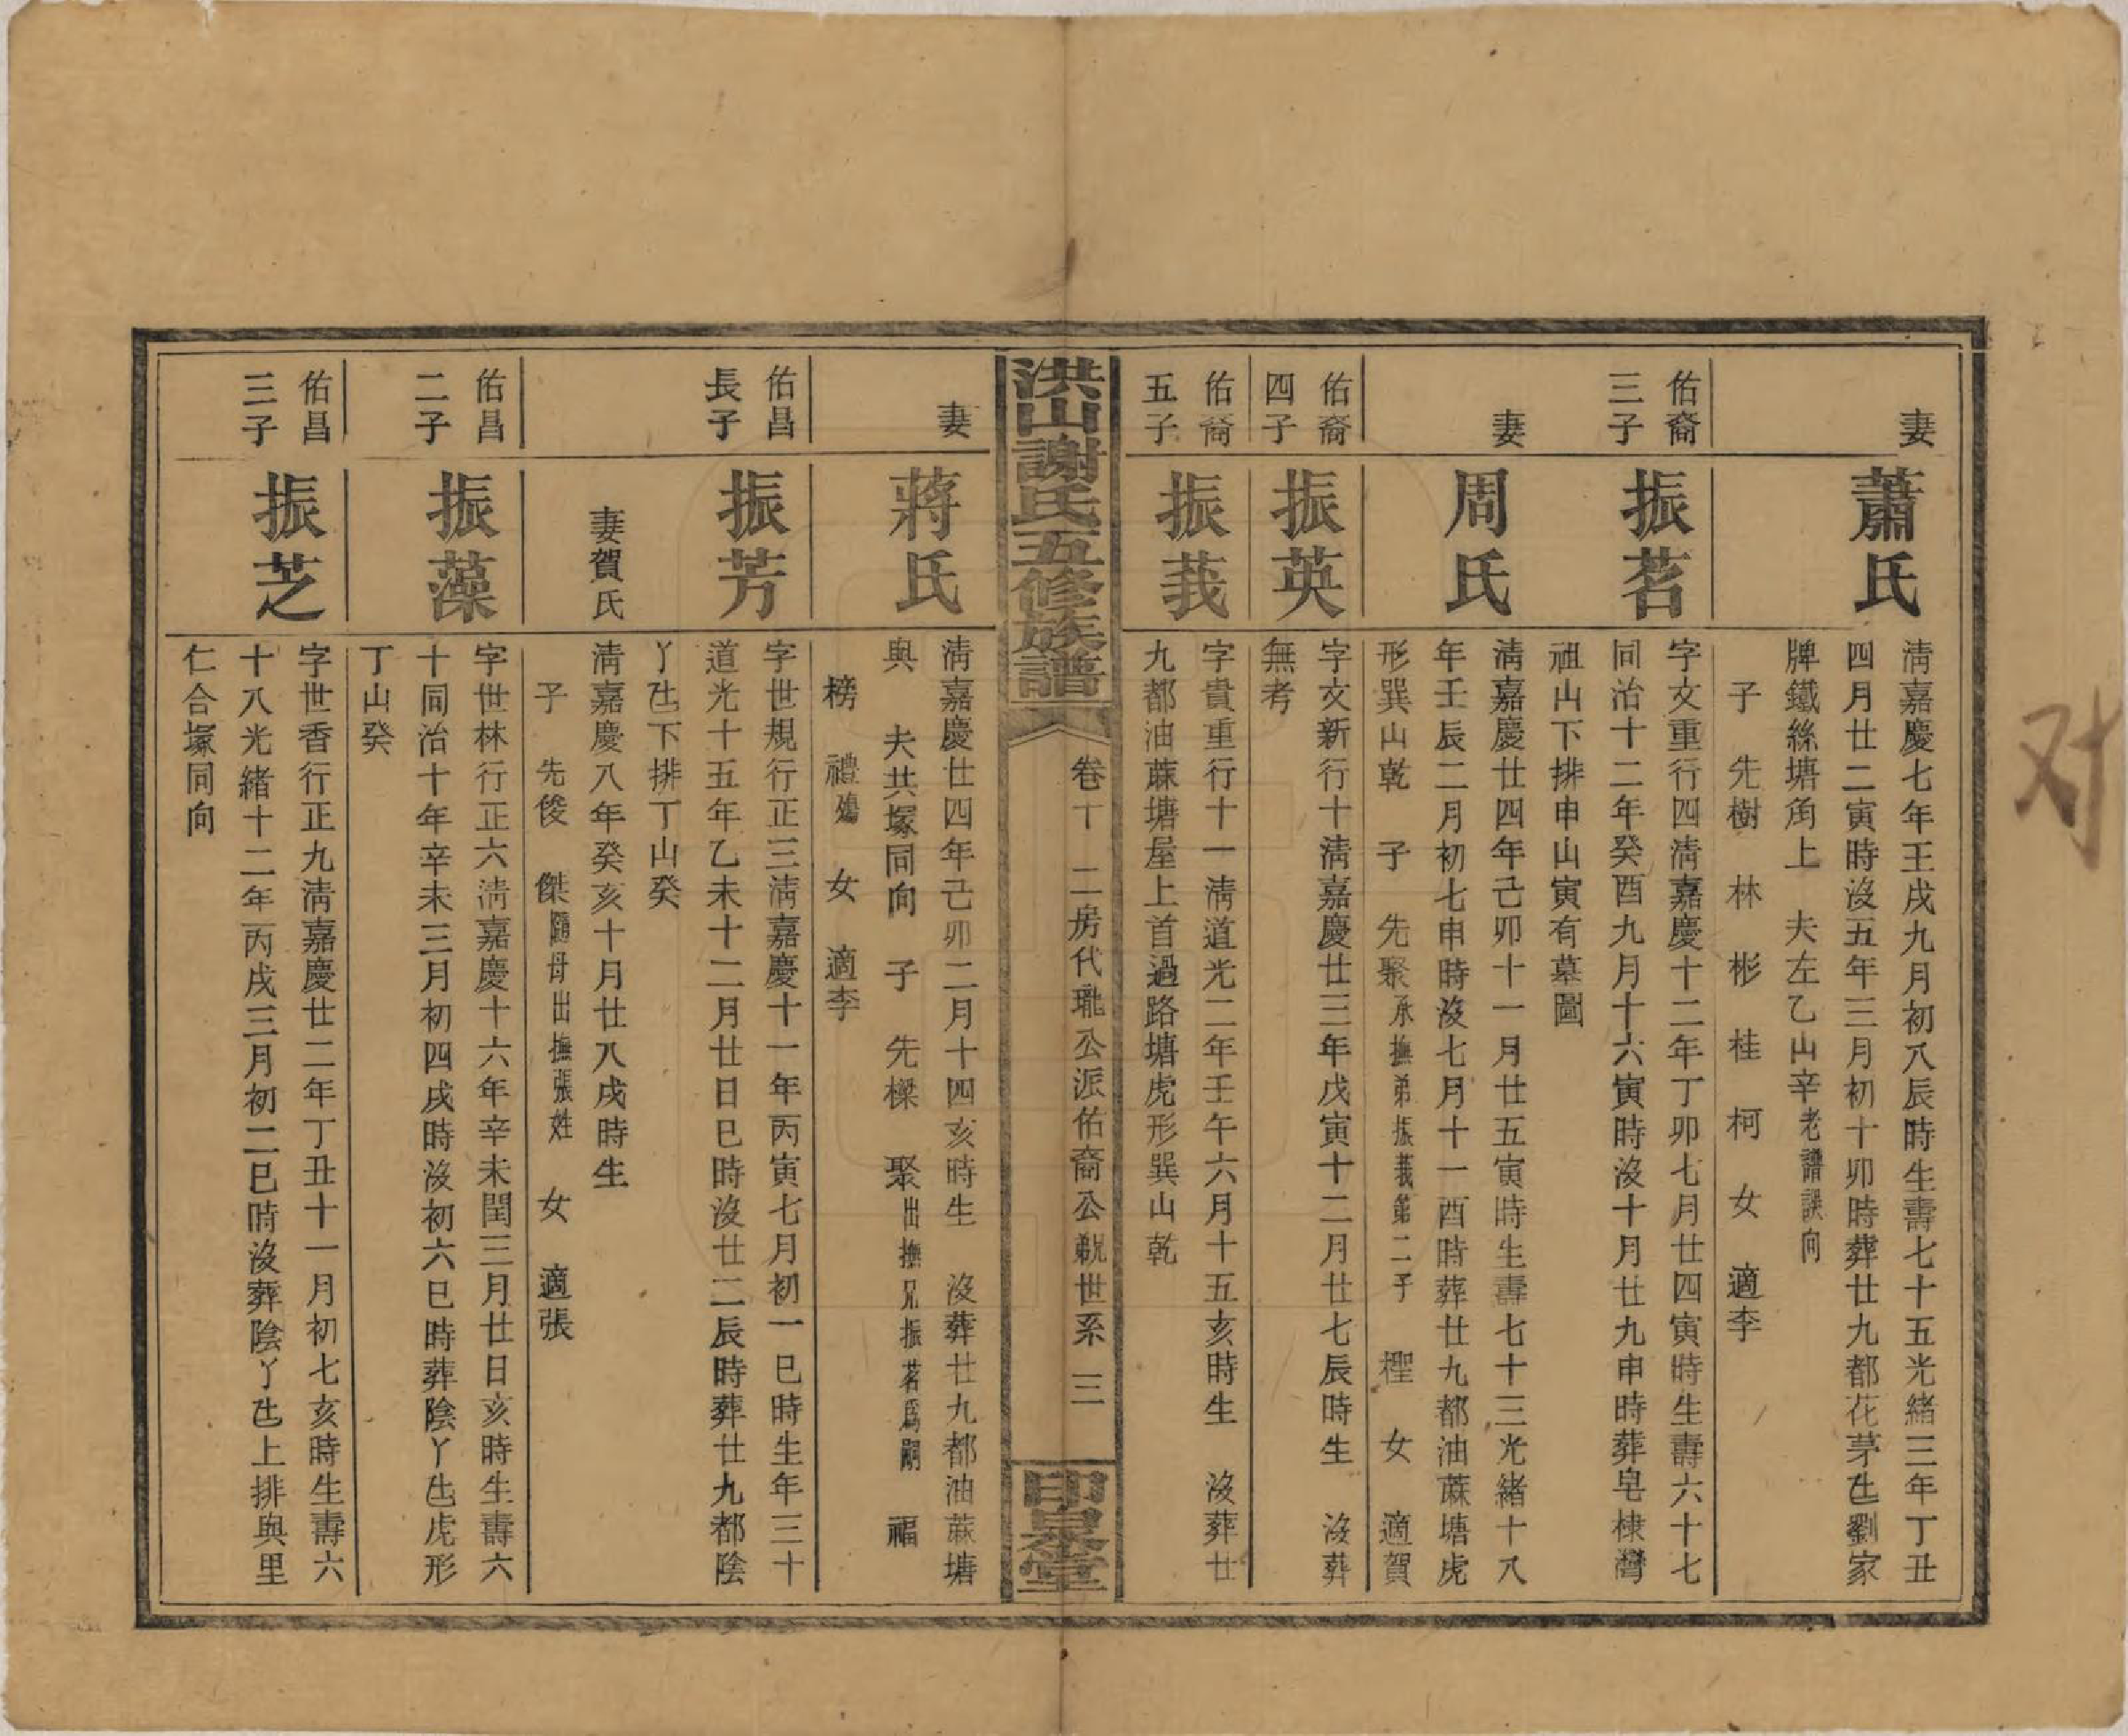 妻
蕭氏
清嘉慶七年壬戌九月初八辰時生壽七十五光緒三年丁丑
四月廿二寅時沒五年三月初十卯時葬廿九都花茅㐌劉家
牌鐵絲塘角上　夫左乙山辛老譜誤向
子　先樹　林　彬　桂　柯　女　適李
佑裔
三子
振茗
字文重行四清嘉慶十二年丁卯七月廿四寅時生壽六十七
同治十二年癸酉九月十六寅時沒十月廿九申時葬皂棣灣
祖山下排申山寅有墓圖
妻
周氏
清嘉慶廿四年己卯十一月廿五寅時生壽七十三光緒十八
年壬辰二月初七申時沒七月十一酉時葬廿九都油蔴塘虎
形巽山乾　子　先聚承撫弟振莪第二子　檉　女　適賀
佑裔
四子
振英
字文新行十清嘉慶廿三年戊寅十二月廿七辰時生　沒葬
無考
佑裔
五子
振莪
字貴重行十一清道光二年壬午六月十五亥時生　沒葬廿
九都油蔴塘屋上首過路塘虎形巽山乾
洪山謝氏五修族譜
卷十　二房代瓏公派佑裔公齯世系　三
印泉堂
妻
蔣氏
清嘉慶廿四年己卯二月十四亥時生　沒葬廿九都油蔴塘
與　夫共塚同向　子　先樑　聚出撫兄振茗爲嗣　福
榜　禮殤　女　適李
佑昌
長子
振芳
字世規行正三清嘉慶十一年丙寅七月初一巳時生年三十
道光十五年乙未十二月廿日巳時沒廿二辰時葬廿九都陰
丫㐌下排丁山癸
妻賀氏
清嘉慶八年癸亥十月廿八戌時生
子　先俊　傑隨母出撫張姓　女　適張
佑昌
二子
振藻
字世林行正六清嘉慶十六年辛未閏三月廿日亥時生壽六
十同治十年辛未三月初四戌時沒初六巳時葬陰丫㐌虎形
丁山癸
佑昌
三子
振芝
字世香行正九清嘉慶廿二年丁丑十一月初七亥時生壽六
十八光緒十二年丙戌三月初二巳時沒葬陰丫㐌上排與里
仁合塚同向
对